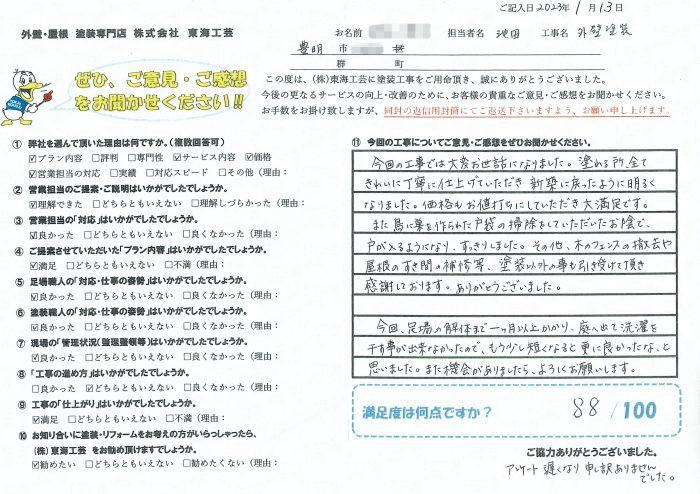 ご記入日 2023年 1月 13日
外壁・屋根 塗装専門店 株式会社 東海工芸
お名前 担当者名 池田 工事名 外壁塗装
豊明 市 様
郡 町
ぜひ、ご意見・ご感想
をお聞かせください!!
この度は、(株)東海工芸に塗装工事をご用命頂き、誠にありがとうございました。
今後の更なるサービスの向上・改善のために、お客様の貴重なご意見・ご感想をお聞かせください。
お手数をお掛け致しますが、同封の返信用封筒にてご返送下さいますよう、お願い申し上げます。
① 弊社を選んで頂いた理由は何ですか。(複数回答可)
☑プラン内容 □評判 □専門性 ☑サービス内容 ☑価格
☑営業担当の対応 □実績 □対応スピード □その他(理由:
② 営業担当のご提案・ご説明はいかがでしたでしょうか。
☑理解できた □どちらともいえない □理解しづらかった(理由:
③ 営業担当の「対応」はいかがでしたでしょうか。
☑良かった □どちらともいえない □良くなかった(理由:
④ ご提案させていただいた「プラン内容」はいかがでしたでしょうか。
☑満足 □どちらともいえない □不満(理由:
⑤ 足場職人の「対応・仕事の姿勢」はいかがでしたでしょうか。
☑良かった □どちらともいえない □良くなかった(理由:
⑥ 塗装職人の「対応・仕事の姿勢」はいかがでしたでしょうか。
☑良かった □どちらともいえない □良くなかった(理由:
⑦ 現場の「管理状況(整理整頓等)」はいかがでしたでしょうか。
☑良かった □どちらともいえない □良くなかった(理由:
⑧ 「工事の進め方」はいかがでしたでしょうか。
□良かった ☑どちらともいえない □良くなかった(理由:
⑨ 工事の「仕上がり」はいかがでしたでしょうか。
☑満足 □どちらともいえない □不満(理由:
⑩ お知り合いに塗装・リフォームをお考えの方がいらっしゃったら、
(株)東海工芸 をお勧め頂けますでしょうか。
☑勧めたい □どちらともいえない □勧めたくない(理由:
⑪ 今回の工事についてご意見・ご感想をぜひお聞かせください。
今回の工事では大変お世話になりました。塗れる所全て
きれいに丁寧に仕上げていただき 新築に戻ったように明るく
なりました。価格もお値打ちにしていただき大満足です。
また鳥に巣を作られた戸袋の掃除をしていただいたお陰で、
戸が入るようになり、すっきりしました。その他、木のフェンスの撤去や
屋根のすき間の補修等、塗装以外の事も引き受けて頂き
感謝しております。ありがとうございました。
今回、足場の解体まで一ヶ月以上かかり、庭へ出て洗濯を
干す事が出来なかったので、もう少し短くなると更に良かったな、と
思いました。また機会がありましたら、よろしくお願いします。
満足度は何点ですか? 88 /100
ご協力ありがとうございました。
アンケート 遅くなり 申し訳ありません
でした。